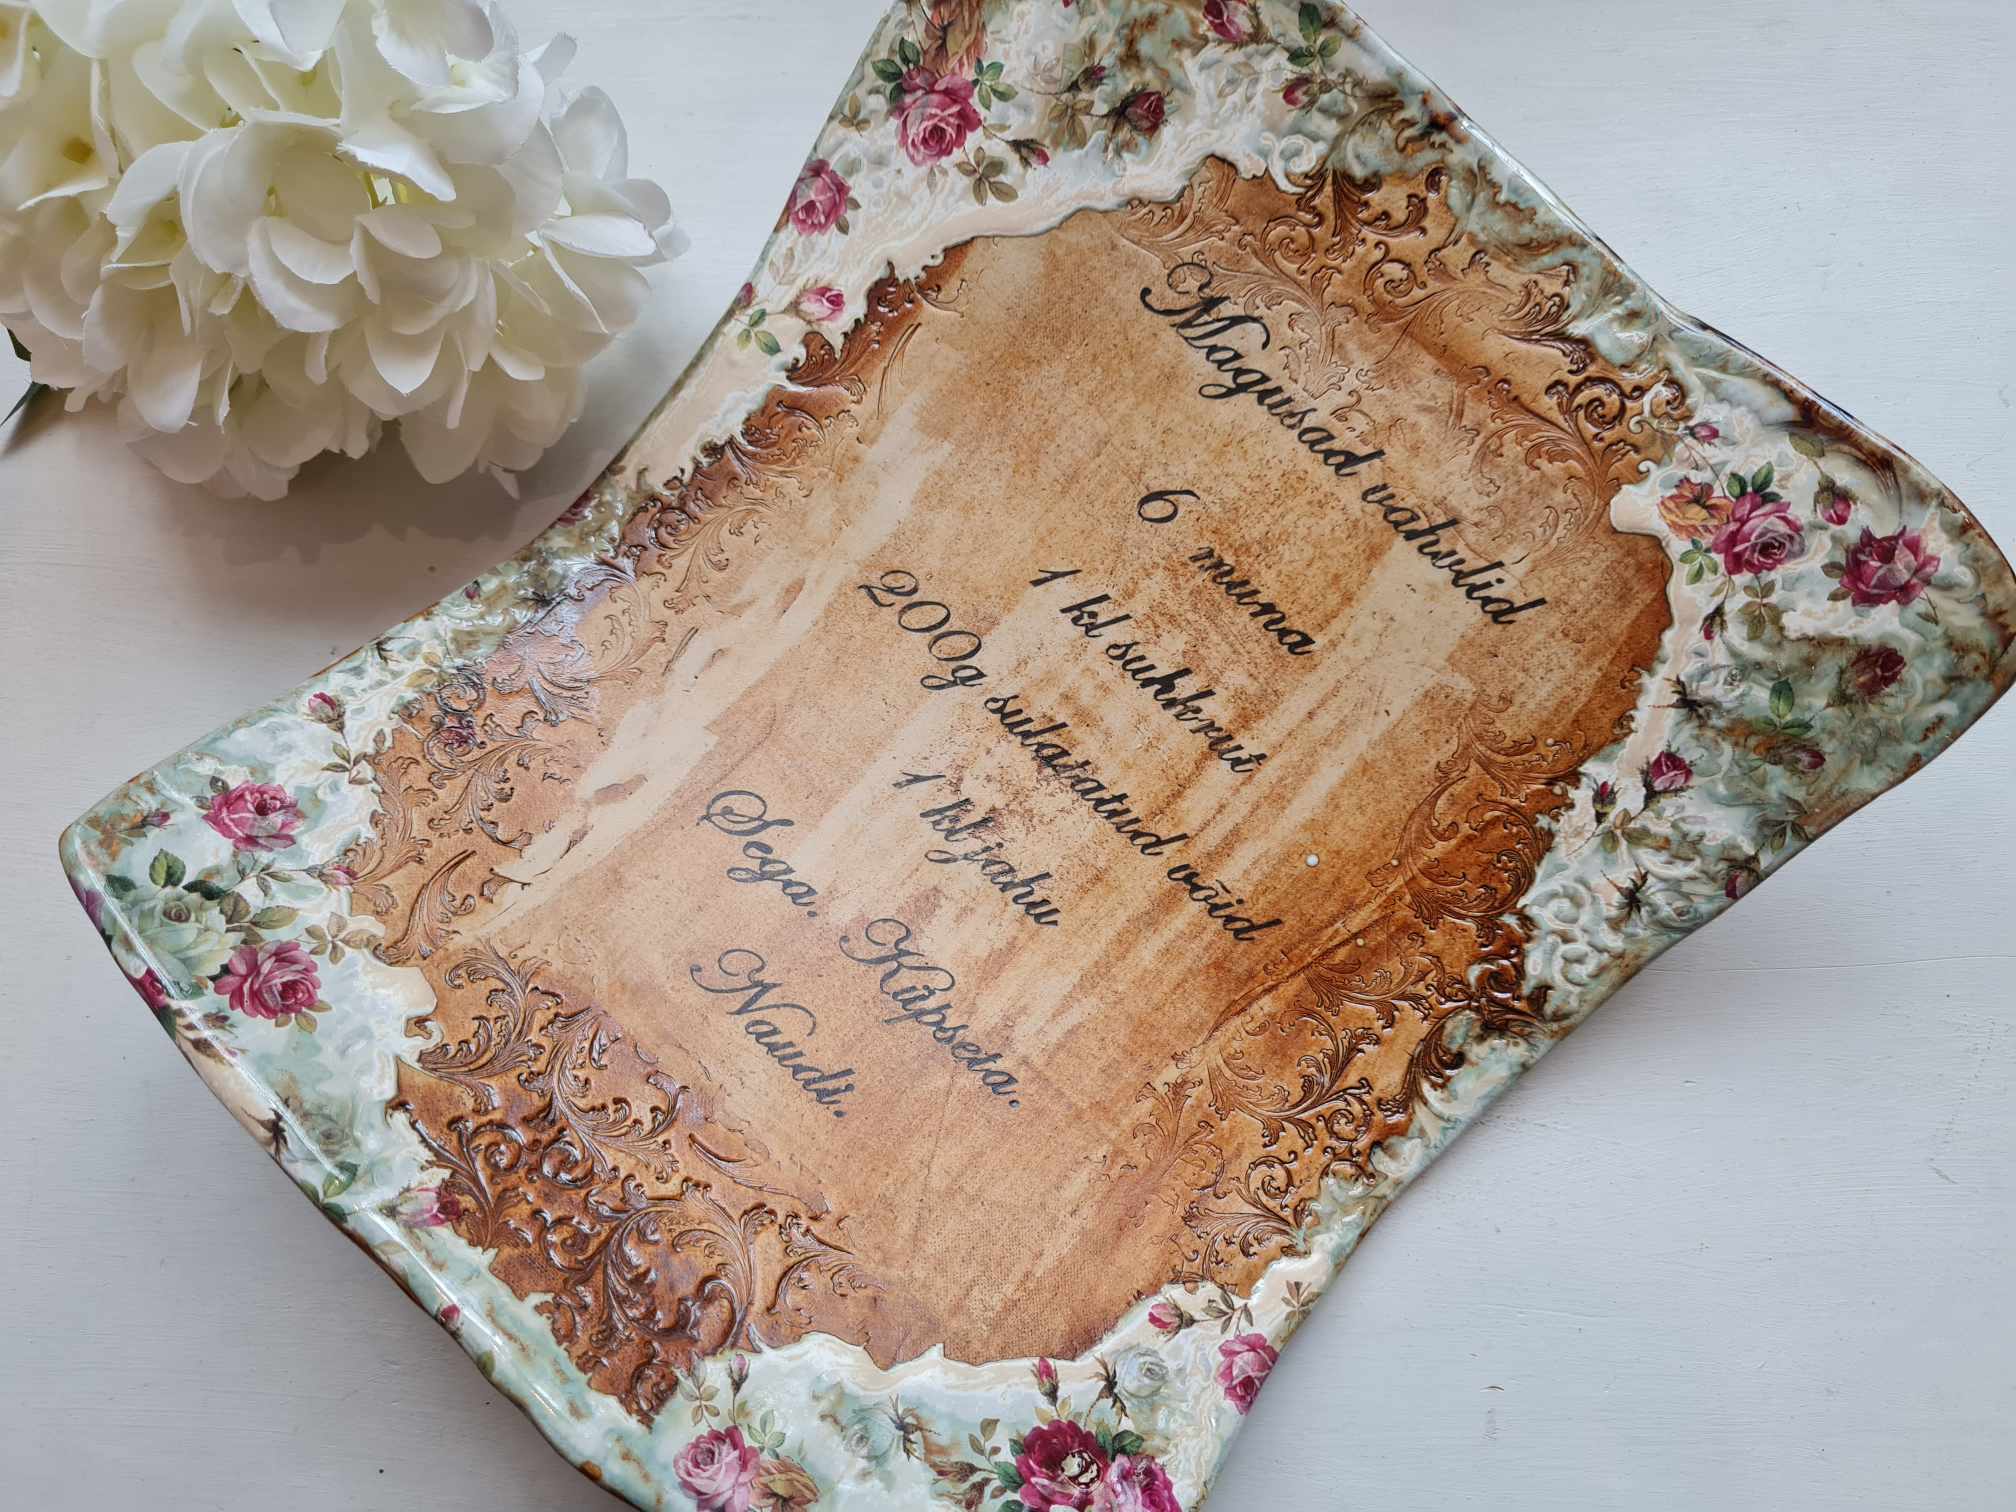 Magusad vahvlid
6 muna
1 kl suhkrut
200g sulatatud võid
1 kl jahu
Sega. Küpseta.
Naudi.